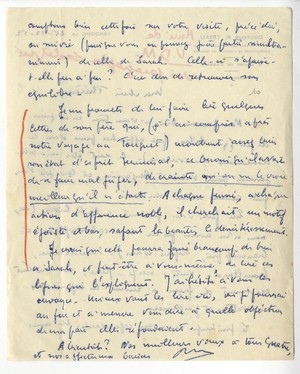 comptons bien cette fois sur votre visite, précédée,
ou suivie (puisque vous ne pouvez faire partie simultanément)
de celle de Sarah. Celle-ci s'apaise-
t-elle peu à peu ? C'est dur de retrouver son
équilibre.
Je me promets de lui faire lire quelques
lettres de son père qui, (je l'ai compris après
notre voyage au Touquet) montrent, assez loin
son état d'esprit, ce besoin qu'il avait
de se faire mal juger, de crainte qu'on ne le croie
meilleur qu'il n'était. A chaque pensée, à chaque
action d'apparence noble, il cherchait un motif
égoïste et bas, sapant la beauté, le désintéressement.
Je crois que cela pourra faire beaucoup de bien
à Sarah, et peut-être à vous-même, de lire ces
lettres qui l'expliquent. J'hésite à vous les
envoyer. Mieux vaut les lire ici, où je pourrai
au fur et à mesure vous dire à quelle objection
de ma part elles répondaient.
A bientôt ? Nos meilleurs vœux à tous quatre,
et nos affectueux baisers